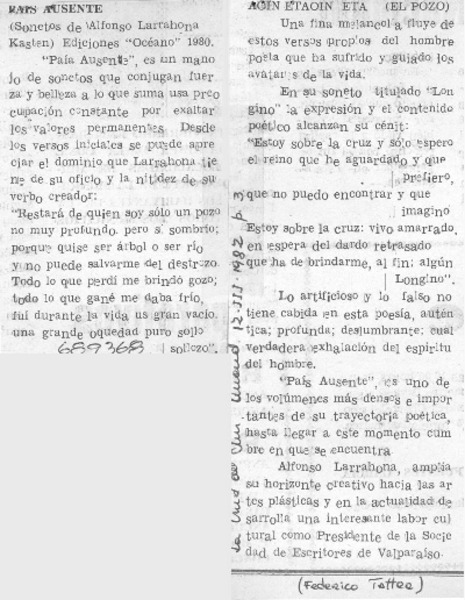 PAIS AUSENTE
(Sonetos de Alfonso Larrahona
Kasten) Ediciones "Océano" 1980.
"País Ausente", es un mano
jo de sonetos que conjugan fuer
za y belleza a lo que suma usa preo
cupación constante por exaltar
los valores permanentes. Desde
los versos iniciales se puede apre
ciar el dominio que Larrahona tie
ne de su oficio y la nitidez de su
verbo creador:
"Restará de quien soy sólo un pozo
no muy profundo. pero sí sombrío;
porque quise ser árbol o ser río
y no puede salvarme del destrozo.
Todo lo que perdí me brindó gozo;
todo lo que gané me daba frío,
fuí durante la vida us gran vacío.
una grande oquedad puro sollo
sollozo".
689368
AOIN ETAOIN ETA (EL POZO)
Una fina melancol a fluye de
estos versos propios del hombre
poeta que ha sufrido y guiado los
avatares de la vida.
En su soneto titulado "Lon
gino" la expresión y el contenido
poético alcanzan su cénit:
"Estoy sobre la cruz y sólo espero
el reino que he aguardado y que
prefiero,
que no puedo encontrar y que
imagino
Estoy sobre la cruz: vivo amarrado,
en espera del dardo retrasado
que ha de brindarme, al fin: algún
Longino".
Lo artificioso y lo falso no
tiene cabida en esta poesía, autén
tica; profunda; deslumbrante; cual
verdadera exhalación del espíritu
del hombre.
"País Ausente", es uno de
los volúmenes más densos e impor
tantes de su trayectoria poética,
hasta llegar a este momento cum
bre en que se encuentra
Alfonso Larrahona, amplía
su horizonte creativo hacia las ar
tes plásticas y en la actualidad de
sarrolla una interesante labor cul
tural como Presidente de la Socie
dad de Escritores de Valparaíso.
(Federico Tatter)
12-III-1982 p. 3